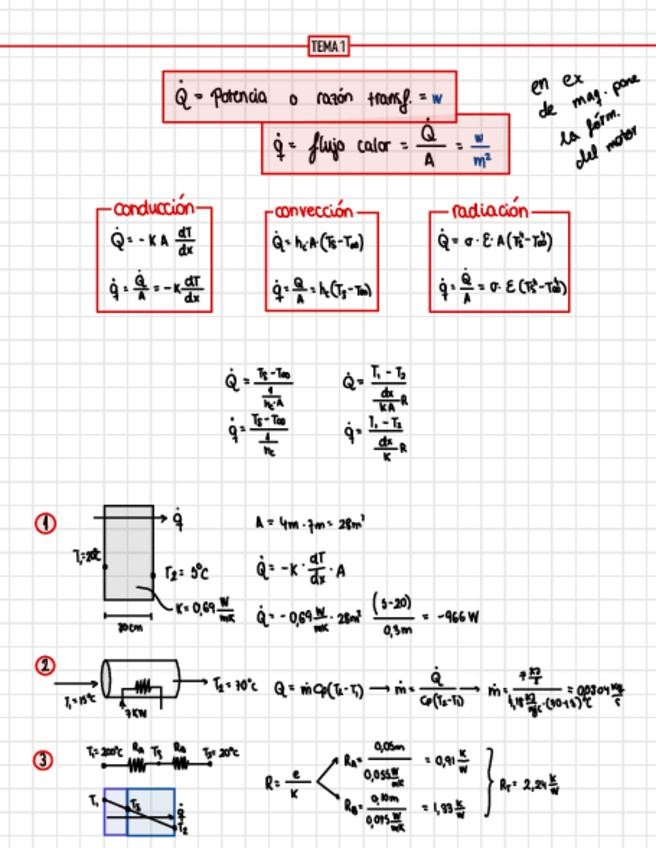 TEMA 1
Q̇ = Potencia o razón transf. = W
q̇ = flujo calor = Q̇/A = W/m²
en ex
de mag. pone
la fórm.
del motor
conducción
Q̇ = -K A dT/dx
q̇ = Q̇/A = -K dT/dx
convección
Q̇ = hc·A·(Ts-T∞)
q̇ = Q̇/A = hc(Ts-T∞)
radiación
Q̇ = σ·ε·A(Ts⁴-T∞⁴)
q̇ = Q̇/A = σ·ε(Ts⁴-T∞⁴)
Q̇ = (Ts-T∞)/(1/(hc·A))
Q̇ = (T₁-T₂)/(dx/(KA)) R
q̇ = (Ts-T∞)/(1/hc)
q̇ = (T₁-T₂)/(dx/K) R
1
q̇
T₁=20°C
T₂=5°C
K=0,69 W/mK
30cm
A = 4m·7m = 28m²
Q̇ = -K·dT/dx·A
Q̇ = -0,69 W/mK·28m² (5-20)/0,3m = -966 W
2
T₁=15°C
7KW
T₂=70°C
Q̇ = ṁCp(T₂-T₁) → ṁ = Q̇/(Cp(T₂-T₁)) → ṁ =
3
T₁=200°C RA T₃ RB T₂=20°C
T₁
T₃
q̇
T₂
R = e/K
RA = 0,05m/(0,055 W/mK) = 0,91 K/W
RB = 0,10m/(0,075 W/mK) = 1,33 K/W
RT = 2,24 K/W